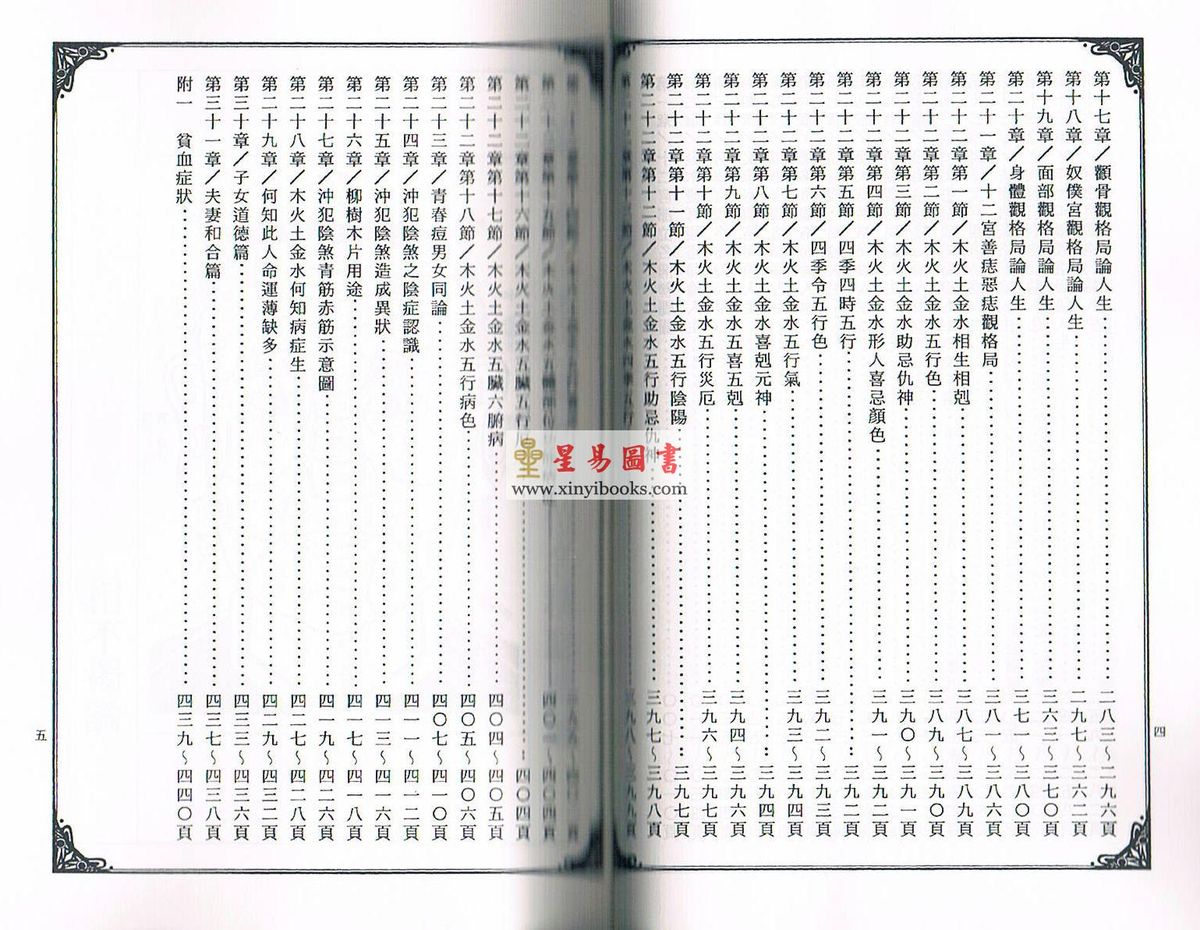 第十七章／顴骨觀格局論人生……二八三～二九六頁
第十八章／奴僕宮觀格局論人生……二九七～三六二頁
第十九章／面部觀格局論人生……三六三～三七〇頁
第二十章／身體觀格局論人生……三七一～三八〇頁
第二十一章／十二宮善痣惡痣觀格局……三八一～三八六頁
第二十二章第一節／木火土金水相生相剋……三八七～三八九頁
第二十二章第二節／木火土金水五行色……三八九～三九〇頁
第二十二章第三節／木火土金水助忌仇神……三九〇～三九一頁
第二十二章第四節／木火土金水形人喜忌顏色……三九一～三九二頁
第二十二章第五節／四季四時五行……三九二頁
第二十二章第六節／四季令五行色……三九二～三九三頁
第二十二章第七節／木火土金水五行氣……三九三～三九四頁
第二十二章第八節／木火土金水喜剋元神……三九四頁
第二十二章第九節／木火土金水五喜五剋……三九四～三九六頁
第二十二章第十節／木火土金水五行災厄……三九六～三九七頁
第二十二章第十一節／木火土金水五行陰陽……三九七頁
第二十二章第十二節／木火土金水五行助忌仇神……三九七～三九八頁
四
第二十二章第十六節／木火土金水五臟五行……四〇四頁
第二十二章第十七節／木火土金水五臟六腑病……四〇四～四〇五頁
第二十二章第十八節／木火土金水五行病色……四〇五～四〇六頁
第二十三章／青春痘男女同論……四〇七～四一〇頁
第二十四章／沖犯陰煞之陰症認識……四一一～四一二頁
第二十五章／沖犯陰煞造成異狀……四一三～四一六頁
第二十六章／柳樹木片用途……四一七～四一八頁
第二十七章／沖犯陰煞青筋赤筋示意圖……四一九～四二六頁
第二十八章／木火土金水何知病症生……四二七～四二八頁
第二十九章／何知此人命運薄缺多……四二九～四三二頁
第三十章／子女道德篇……四三三～四三六頁
第三十一章／夫妻和合篇……四三七～四三八頁
附一　貧血症狀……四三九～四四〇頁
五
星易圖書
www.xinyibooks.com